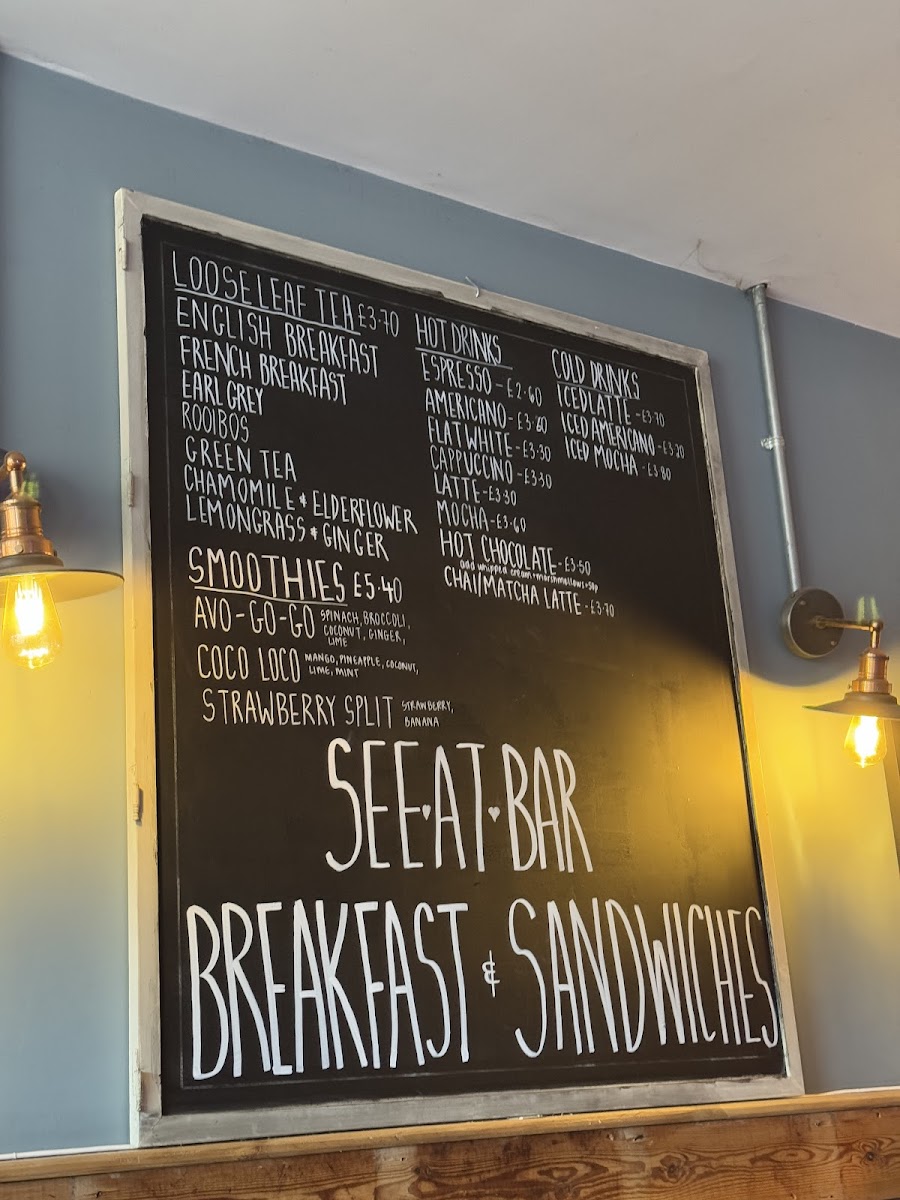 LOOSE LEAF TEA £3.70
ENGLISH BREAKFAST
FRENCH BREAKFAST
EARL GREY
ROOIBOS
GREEN TEA
CHAMOMILE & ELDERFLOWER
LEMONGRASS & GINGER
SMOOTHIES £5.40
AVO-GO-GO SPINACH, BROCCOLI,
COCONUT, GINGER,
LIME
COCO LOCO MANGO, PINEAPPLE, COCONUT,
LIME, MINT
STRAWBERRY SPLIT STRAWBERRY,
BANANA
HOT DRINKS
ESPRESSO - £2.60
AMERICANO - £3.20
FLAT WHITE - £3.30
CAPPUCCINO - £3.30
LATTE - £3.30
MOCHA - £3.60
HOT CHOCOLATE - £3.50
add whipped cream + marshmallows + 50p
CHAI/MATCHA LATTE - £3.70
COLD DRINKS
ICED LATTE - £3.70
ICED AMERICANO - £3.20
ICED MOCHA - £3.80
SEE♥AT♥BAR
BREAKFAST & SANDWICHES